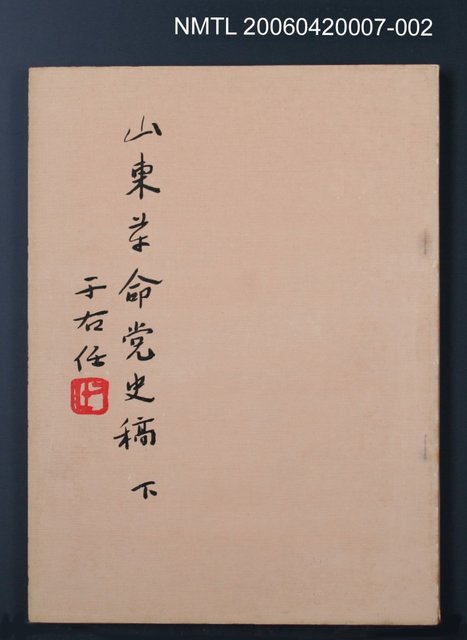 NMTL 20060420007-002
山東革命党史稿 下
于右任